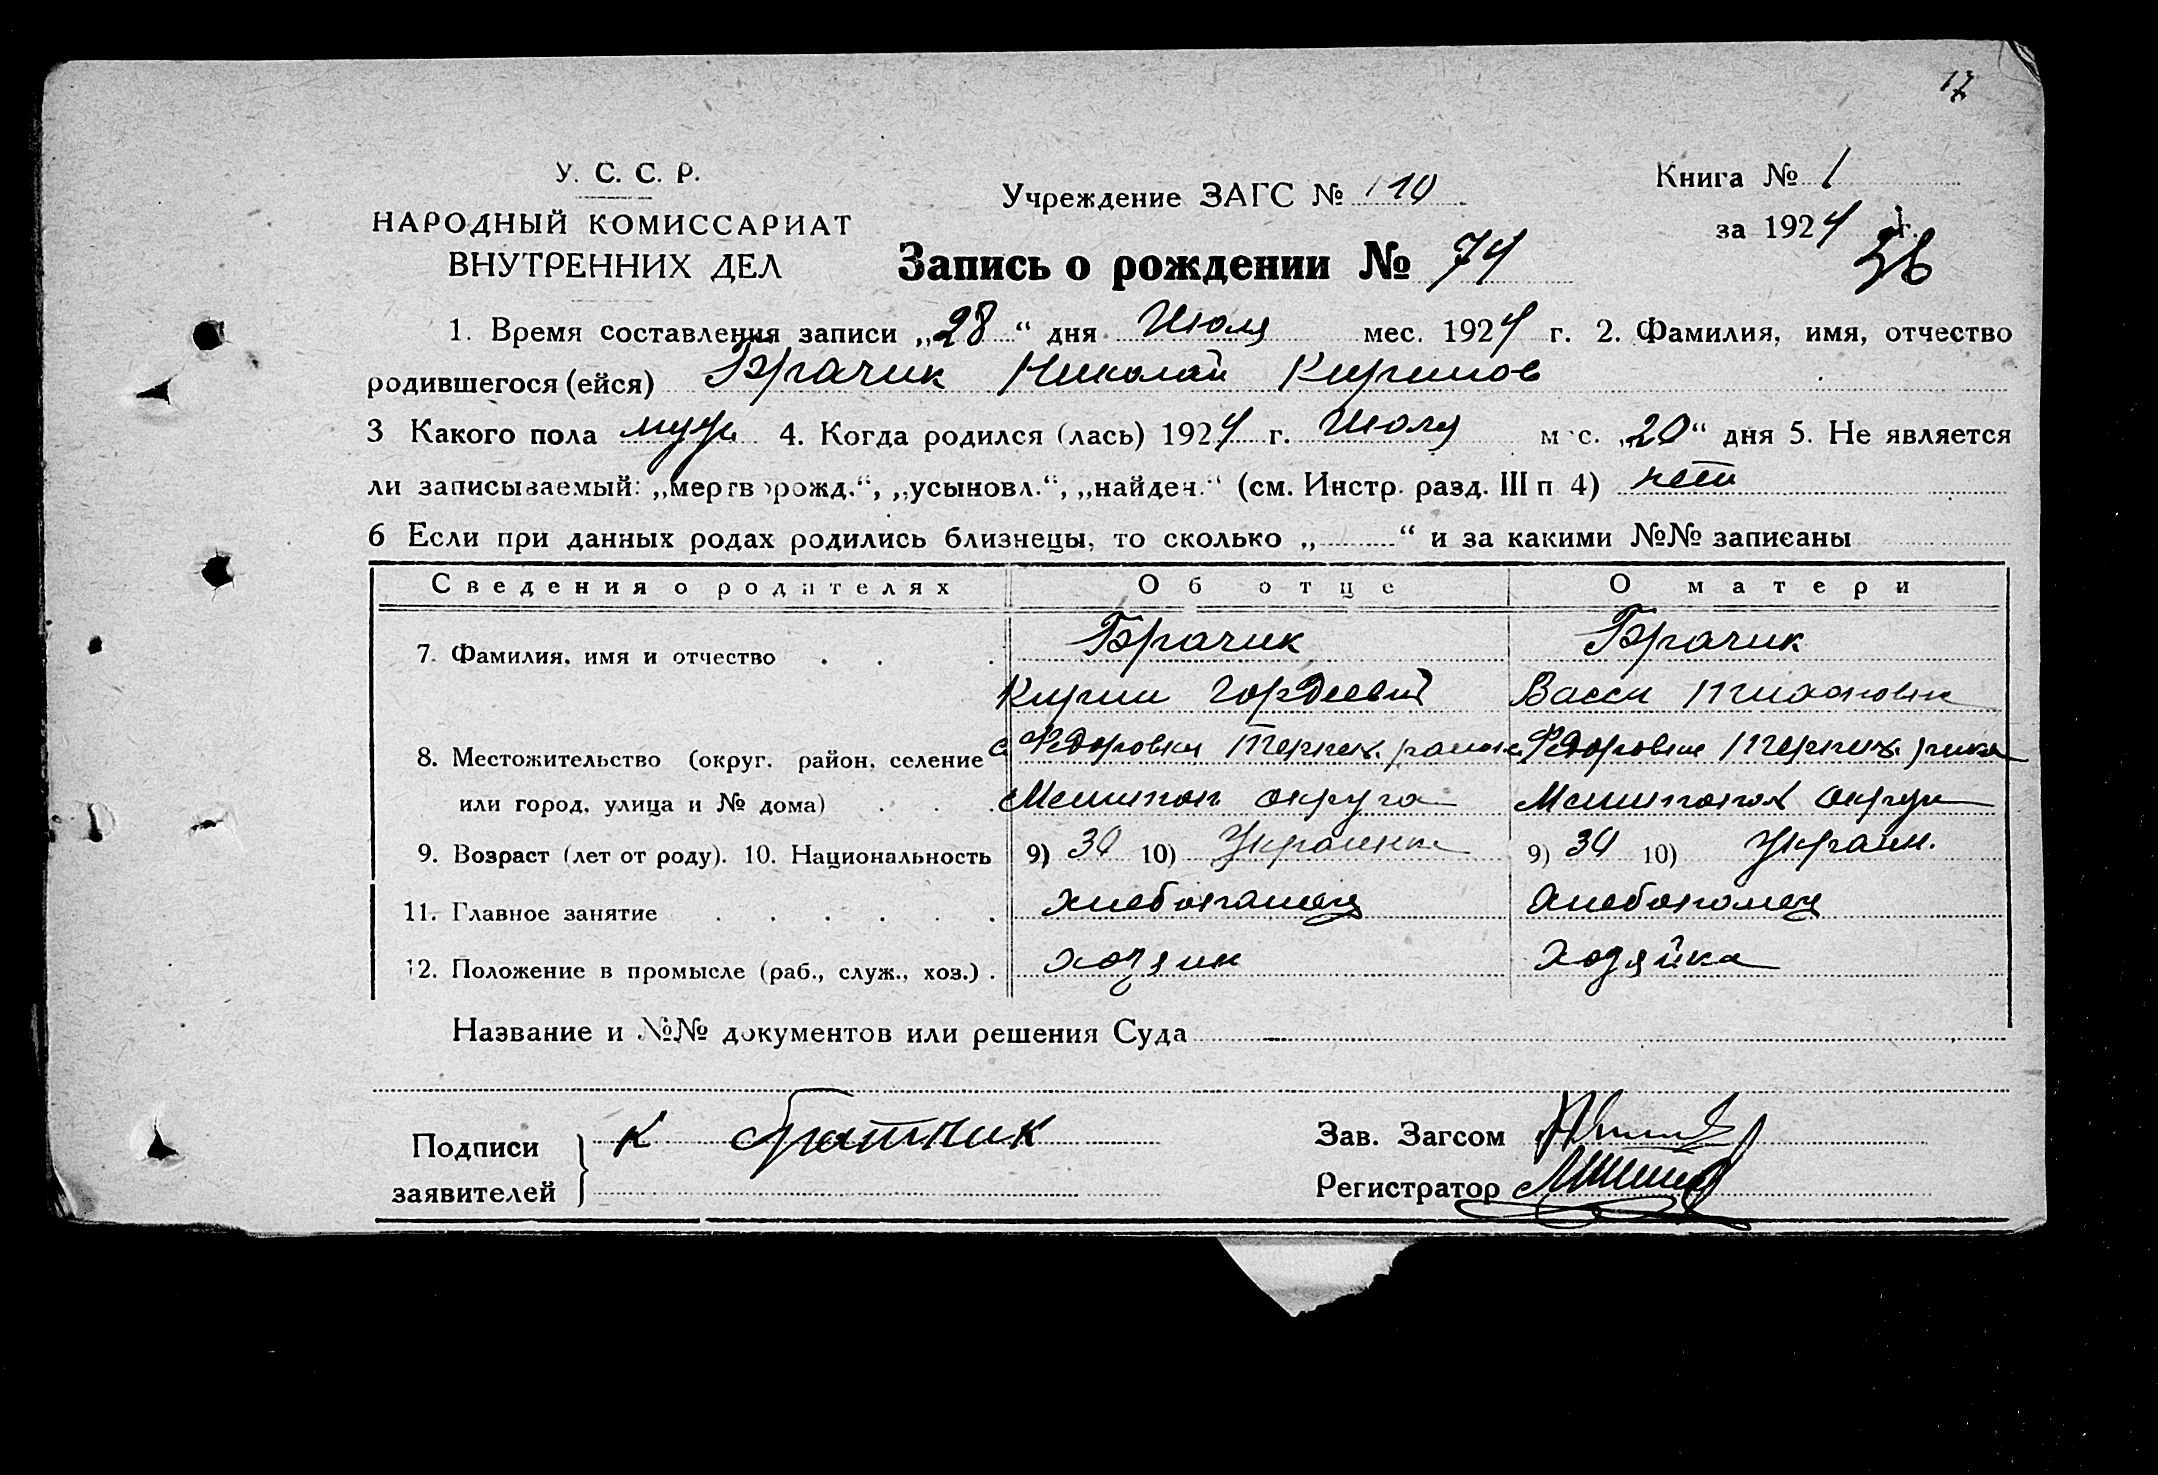 17
У. С. С. Р.
НАРОДНЫЙ КОМИССАРИАТ
ВНУТРЕННИХ ДЕЛ
Учреждение ЗАГС № 10
Книга № 1
за 1924 г.
Запись о рождении № 74
1. Время составления записи „28“ дня Июля мес. 1924 г. 2. Фамилия, имя, отчество
родившегося (ейся) Брачик Николай Кирилов
3 Какого пола муж 4. Когда родился (лась) 1924 г. Июля мес. „20“ дня 5. Не является
ли записываемый: „мертворожд.“, „усыновл.“, „найден.“ (см. Инстр. разд. III п 4) нет
6 Если при данных родах родились близнецы, то сколько „ “ и за какими №№ записаны
Сведения о родителях Об отце О матери
7. Фамилия, имя и отчество Брачик Брачик
Кирил Гордеевич Васса Тихоновн
8. Местожительство (округ, район, селение с Федоровки района Федоровки
или город, улица и № дома) Мелитоп округа округа
9. Возраст (лет от роду). 10. Национальность 9) 30 10) Украинец 9) 30 10) Украин.
11. Главное занятие хлебопашец хлебопашец
12. Положение в промысле (раб., служ., хоз.) хозяин хозяйка
Название и №№ документов или решения Суда
Подписи К Братчик Зав. Загсом
заявителей Регистратор